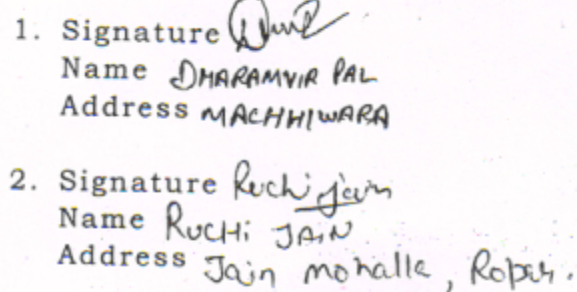 1. Signature
Name DHARAMVIR PAL
Address MACHHIWARA
2. Signature Ruchi jain
Name RUCHI JAIN
Address Jain mohalla, Ropar.